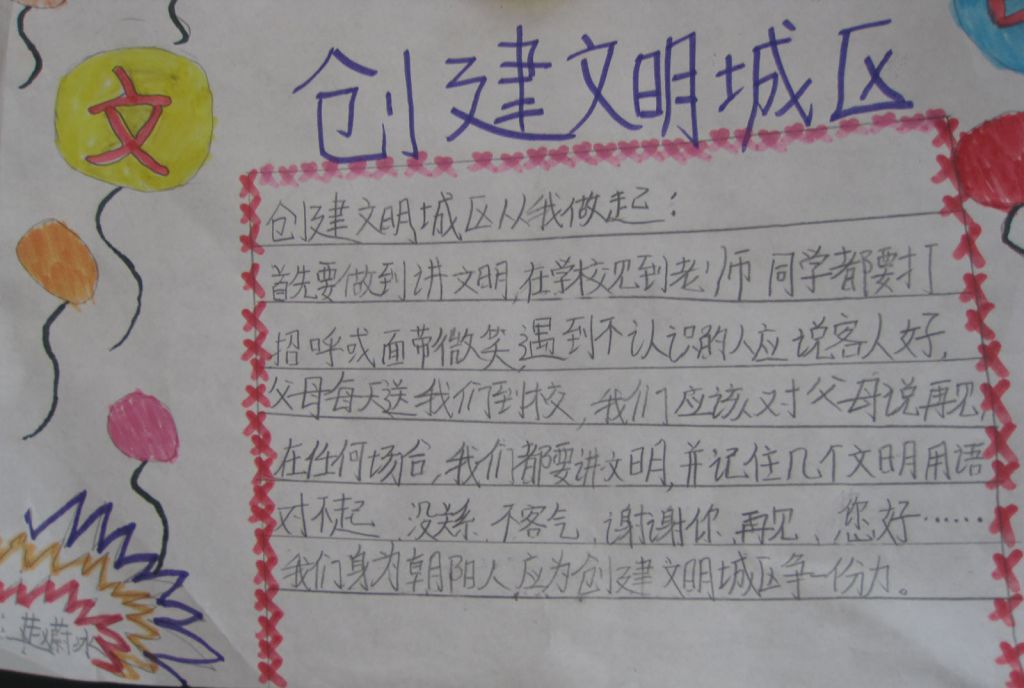 创建文明城区
文
创建文明城区从我做起：
首先要做到讲文明,在学校见到老师同学都要打
招呼或面带微笑,遇到不认识的人应说客人好,
父母每天送我们到校,我们应该对父母说再见,
在任何场合,我们都要讲文明,并记住几个文明用语
对不起、没关系、不客气、谢谢你、再见、您好……
我们身为朝阳人,应为创建文明城区争一份力。